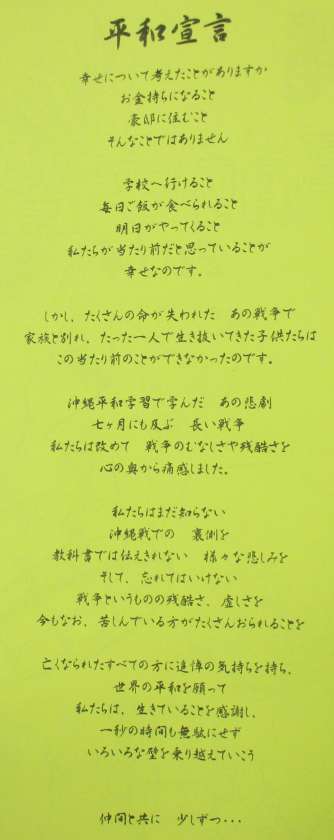 平和宣言
幸せについて考えたことがありますか
お金持ちになること
豪邸に住むこと
そんなことではありません
学校へ行けること
毎日ご飯が食べられること
明日がやってくること
私たちが当たり前だと思っていることが
幸せなのです。
しかし、たくさんの命が失われた あの戦争で
家族と別れ、たった一人で生き抜いてきた子供たちは
この当たり前のことができなかったのです。
沖縄平和学習で学んだ あの悲劇
七ヶ月にも及ぶ 長い戦争
私たちは改めて 戦争のむなしさや残酷さを
心の奥から痛感しました。
私たちはまだ知らない
沖縄戦での 裏側を
教科書では伝えきれない 様々な悲しみを
そして、忘れてはいけない
戦争というものの残酷さ、虚しさを
今もなお、苦しんでいる方がたくさんおられることを
亡くなられたすべての方に追悼の気持ちを持ち、
世界の平和を願って
私たちは、生きていることを感謝し、
一秒の時間も無駄にせず
いろいろな壁を乗り越えていこう
仲間と共に 少しずつ・・・